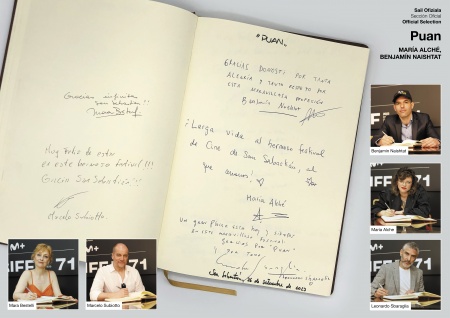 Sail Ofiziala
Sección Oficial
Official Selection
Puan
MARÍA ALCHÉ,
BENJAMÍN NAISHTAT
"PUAN"
GRACIAS DONOSTI POR TANTA
ALEGRÍA Y TANTO RESPETO POR
ESTA MARAVILLOSA PROFESIÓN
Benjamín Naishtat
Gracias infinitas
San Sebastián!!
¡Larga vida al hermoso festival
de Cine de San Sebastián, al
que amamos!
María Alché
Muy feliz de estar
en este hermoso festival!!!
Gracias San Sebastián!!
Marcelo Subiotto
Un gran placer estar hoy y
en este maravilloso festival
Gracias por "Puan"
y por todo
San Sebastián, 26 de setiembre de 2023
M+
IFF 71
Benjamín Naishtat
María Alché
Leonardo Sbaraglia
M+
IFF 71
Mara Bestelli
Marcelo Subiotto